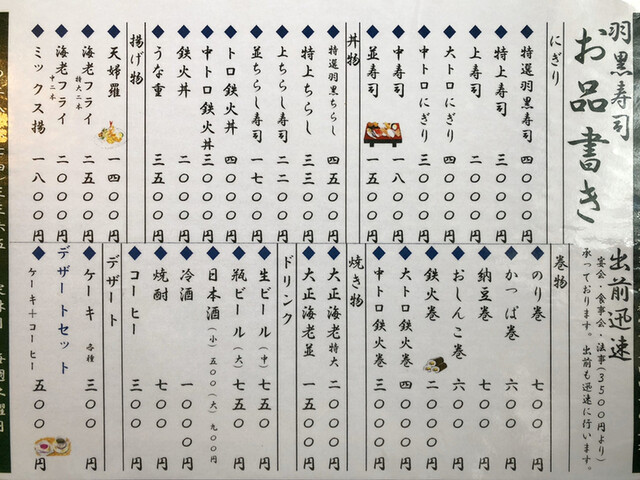 羽黒寿司
お品書き
出前迅速
宴会・食事会・法事(3500円より)
承っております。出前も迅速に行います。
にぎり
◆特選羽黒寿司 四五〇〇円
◆特上寿司 三〇〇〇円
◆上寿司 二〇〇〇円
◆大トロにぎり 四〇〇〇円
◆中トロにぎり 三〇〇〇円
◆中寿司 一八〇〇円
◆並寿司 一五〇〇円
丼物
◆特選羽黒ちらし 四五〇〇円
◆特上ちらし 三三〇〇円
◆上ちらし寿司 二二〇〇円
◆並ちらし寿司 一七〇〇円
◆トロ鉄火丼 四〇〇〇円
◆中トロ鉄火丼 三〇〇〇円
◆鉄火丼 二五〇〇円
◆うな重 三五〇〇円
揚げ物
◆天婦羅 一四〇〇円
◆海老フライ 特大二本 二五〇〇円
◆海老フライ 中二本 二〇〇〇円
◆ミックス揚 一八〇〇円
巻物
◆のり巻 七〇〇円
◆かっぱ巻 六〇〇円
◆納豆巻 七〇〇円
◆おしんこ巻 六〇〇円
◆鉄火巻 二〇〇〇円
◆大トロ鉄火巻 四〇〇〇円
◆中トロ鉄火巻 三〇〇〇円
焼き物
◆大正海老 特大 二〇〇〇円
◆大正海老 並 一五〇〇円
ドリンク
◆生ビール(中) 七五〇円
◆瓶ビール(大) 七五〇円
◆日本酒(小)五〇〇(大)九〇〇円
◆冷酒 一〇〇〇円
◆焼酎 七〇〇円
◆コーヒー 三〇〇円
デザート
◆ケーキ 各種 三〇〇円
デザートセット
◆ケーキ+コーヒー 五〇〇円